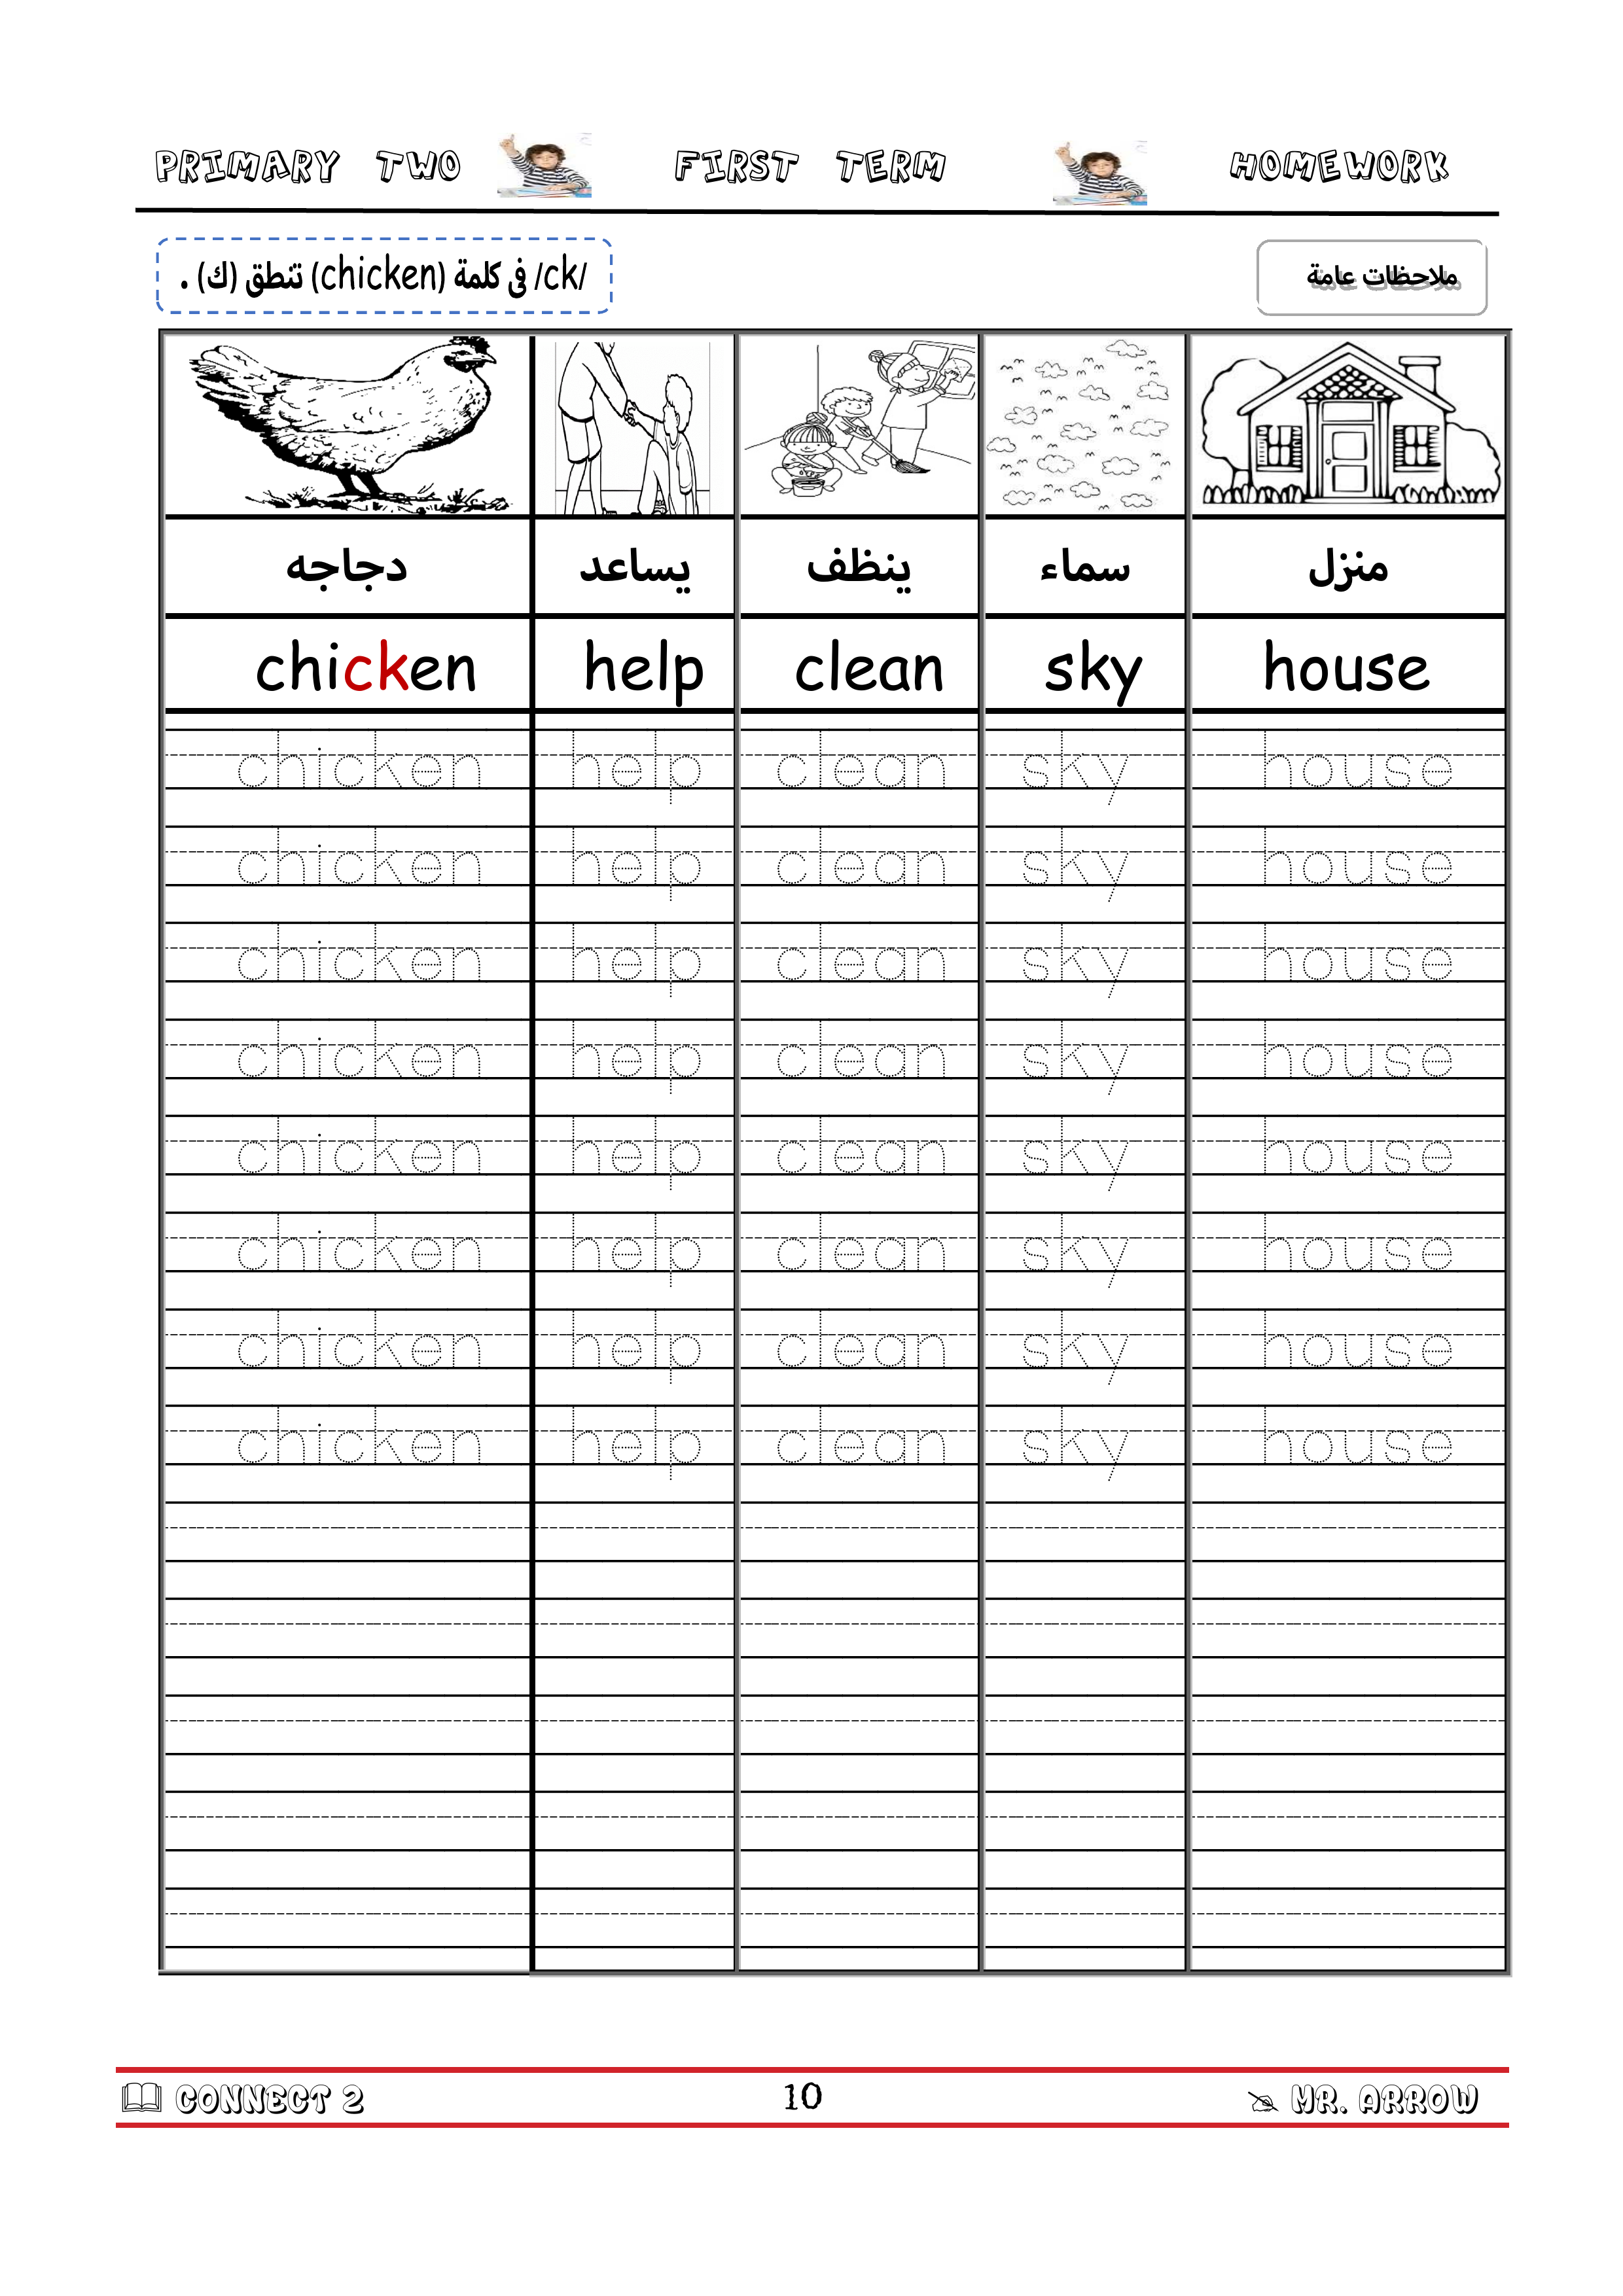 PRIMARY TWO FIRST TERM HOMEWORK
ملاحظات عامة
/ck/ فى كلمة (chicken) تنطق (ك) .
دجاجه يساعد ينظف سماء منزل
chicken help clean sky house
chicken help clean sky house
chicken help clean sky house
chicken help clean sky house
chicken help clean sky house
chicken help clean sky house
chicken help clean sky house
chicken help clean sky house
chicken help clean sky house
CONNECT 2 10 MR. ARROW